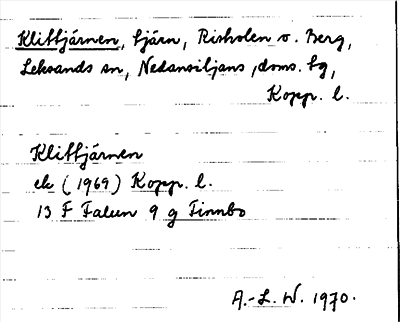 Klittjärnen, tjärn, Risholen o. Berg,
Leksands sn, Nedansiljans doms. tg,
Kopp. l.
Klittjärnen
ek (1969) Kopp. l.
13 F Falun 9 g Finnbo
A.-L. W. 1970.